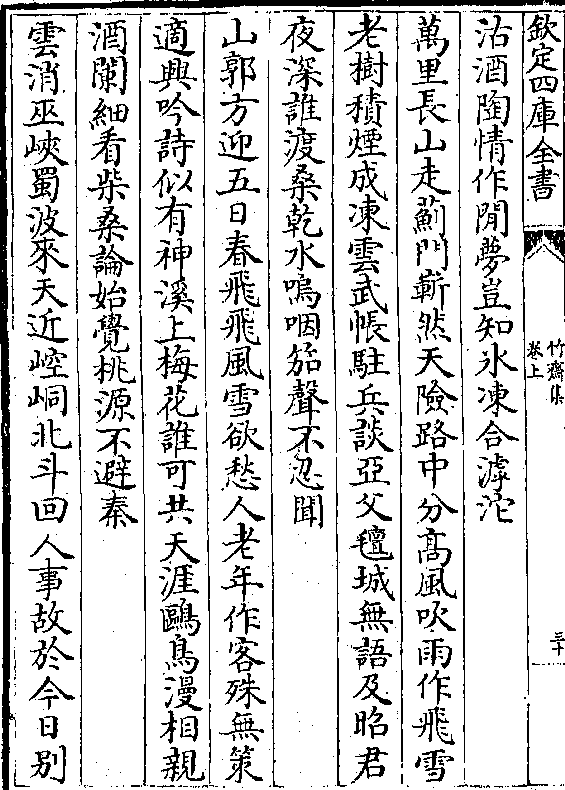 欽定四庫全書
竹齋集
卷上
三十
沽酒陶情作閒夢豈知氷凍合滹沱
萬里長山走薊門嶄然天險路中分髙風吹雨作飛雪
老樹積煙成凍雲武帳駐兵談亞父氊城無語及昭君
夜深誰渡桑乾水嗚咽笳聲不忍聞
山郭方迎五日春飛飛風雪欲愁人老年作客殊無策
適興吟詩似有神溪上梅花誰可共天涯鷗鳥漫相親
酒闌細看柴桑論始覺桃源不避秦
雲消巫峽蜀波來天近崆峒北斗回人事故於今日别